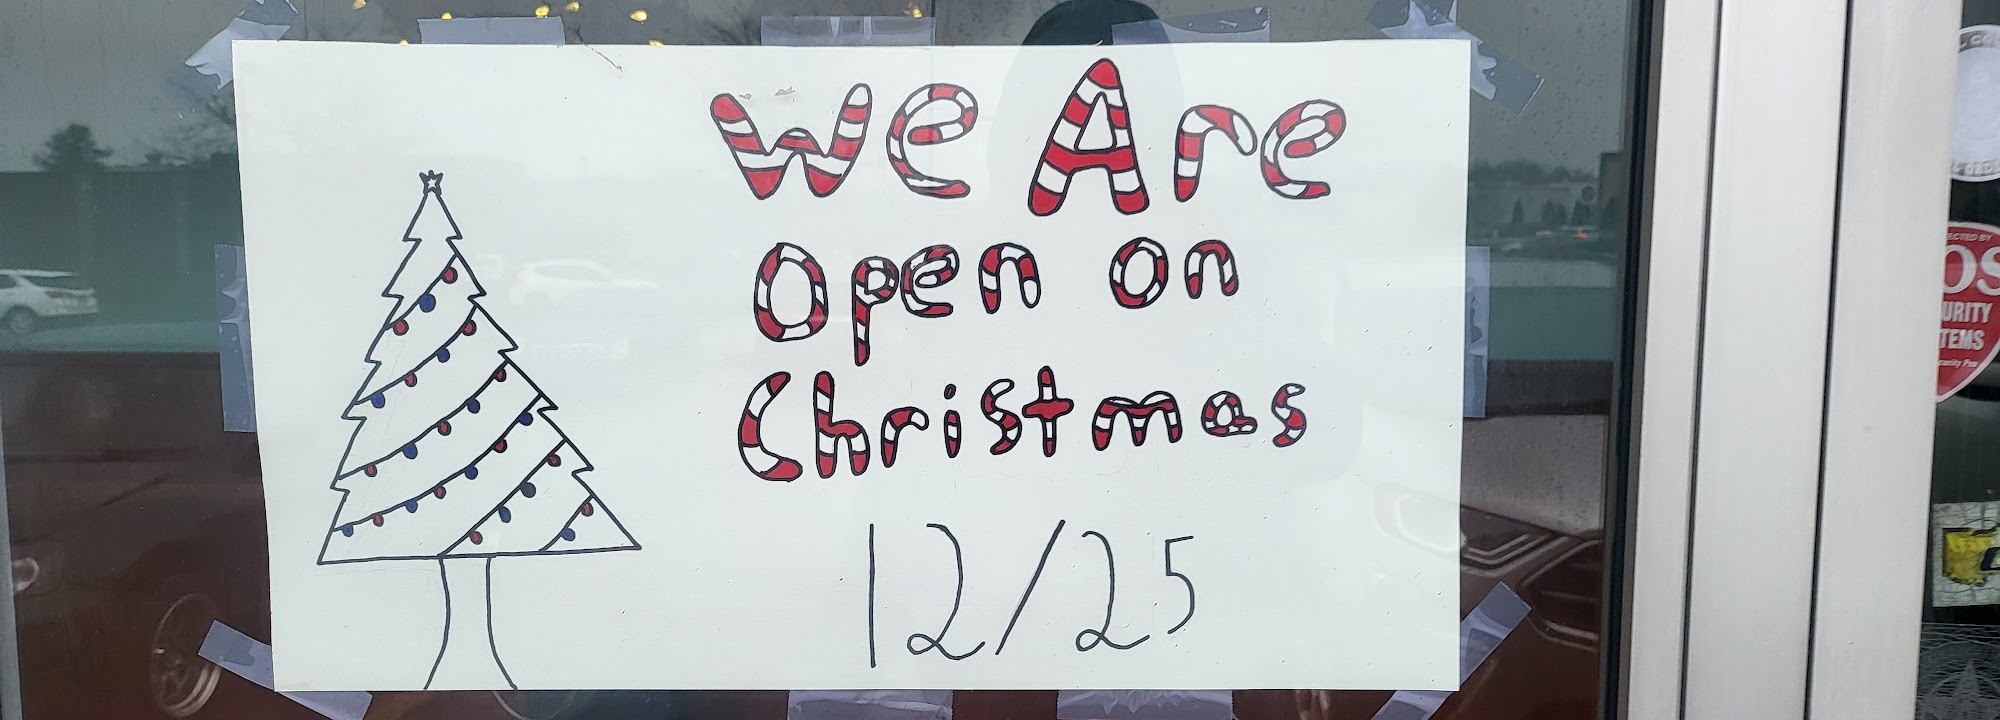 We Are
Open on
Christmas
12/25
URITY
TEMS